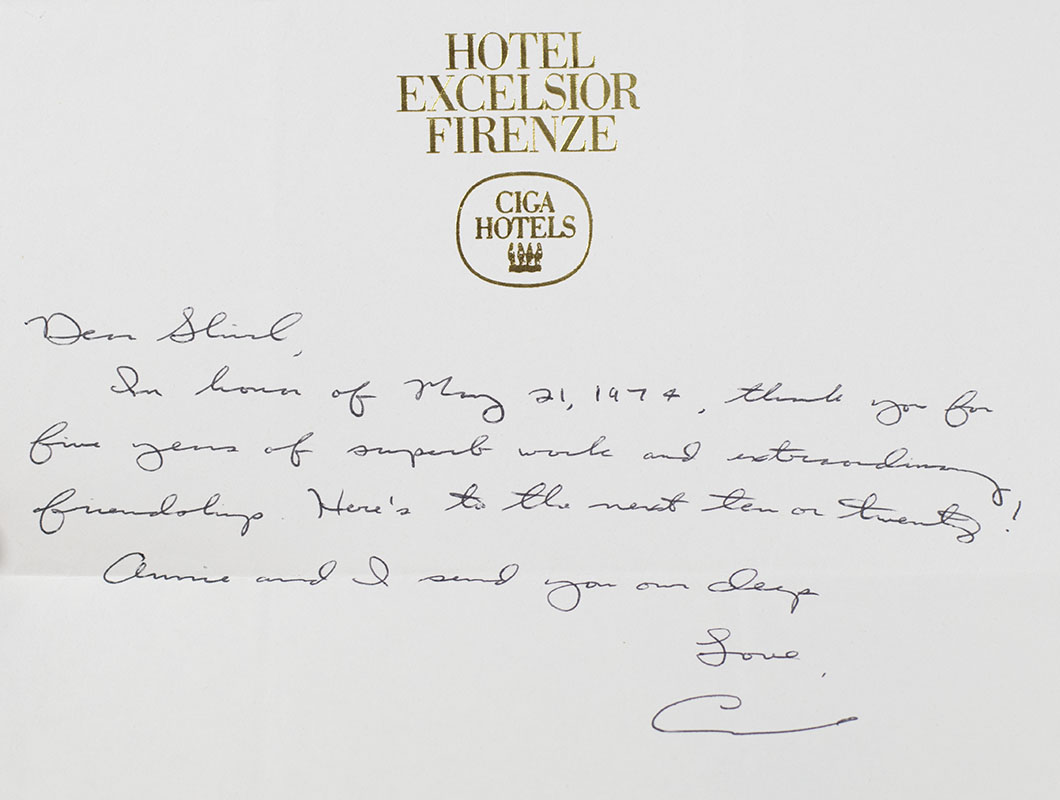 HOTEL
EXCELSIOR
FIRENZE
CIGA
HOTELS
Dear Shirl,
In honor of May 21, 1974, thank you for
five years of superb work and extraordinary
friendship. Here's to the next ten or twenty!
Annie and I send you our deep
Love,
C